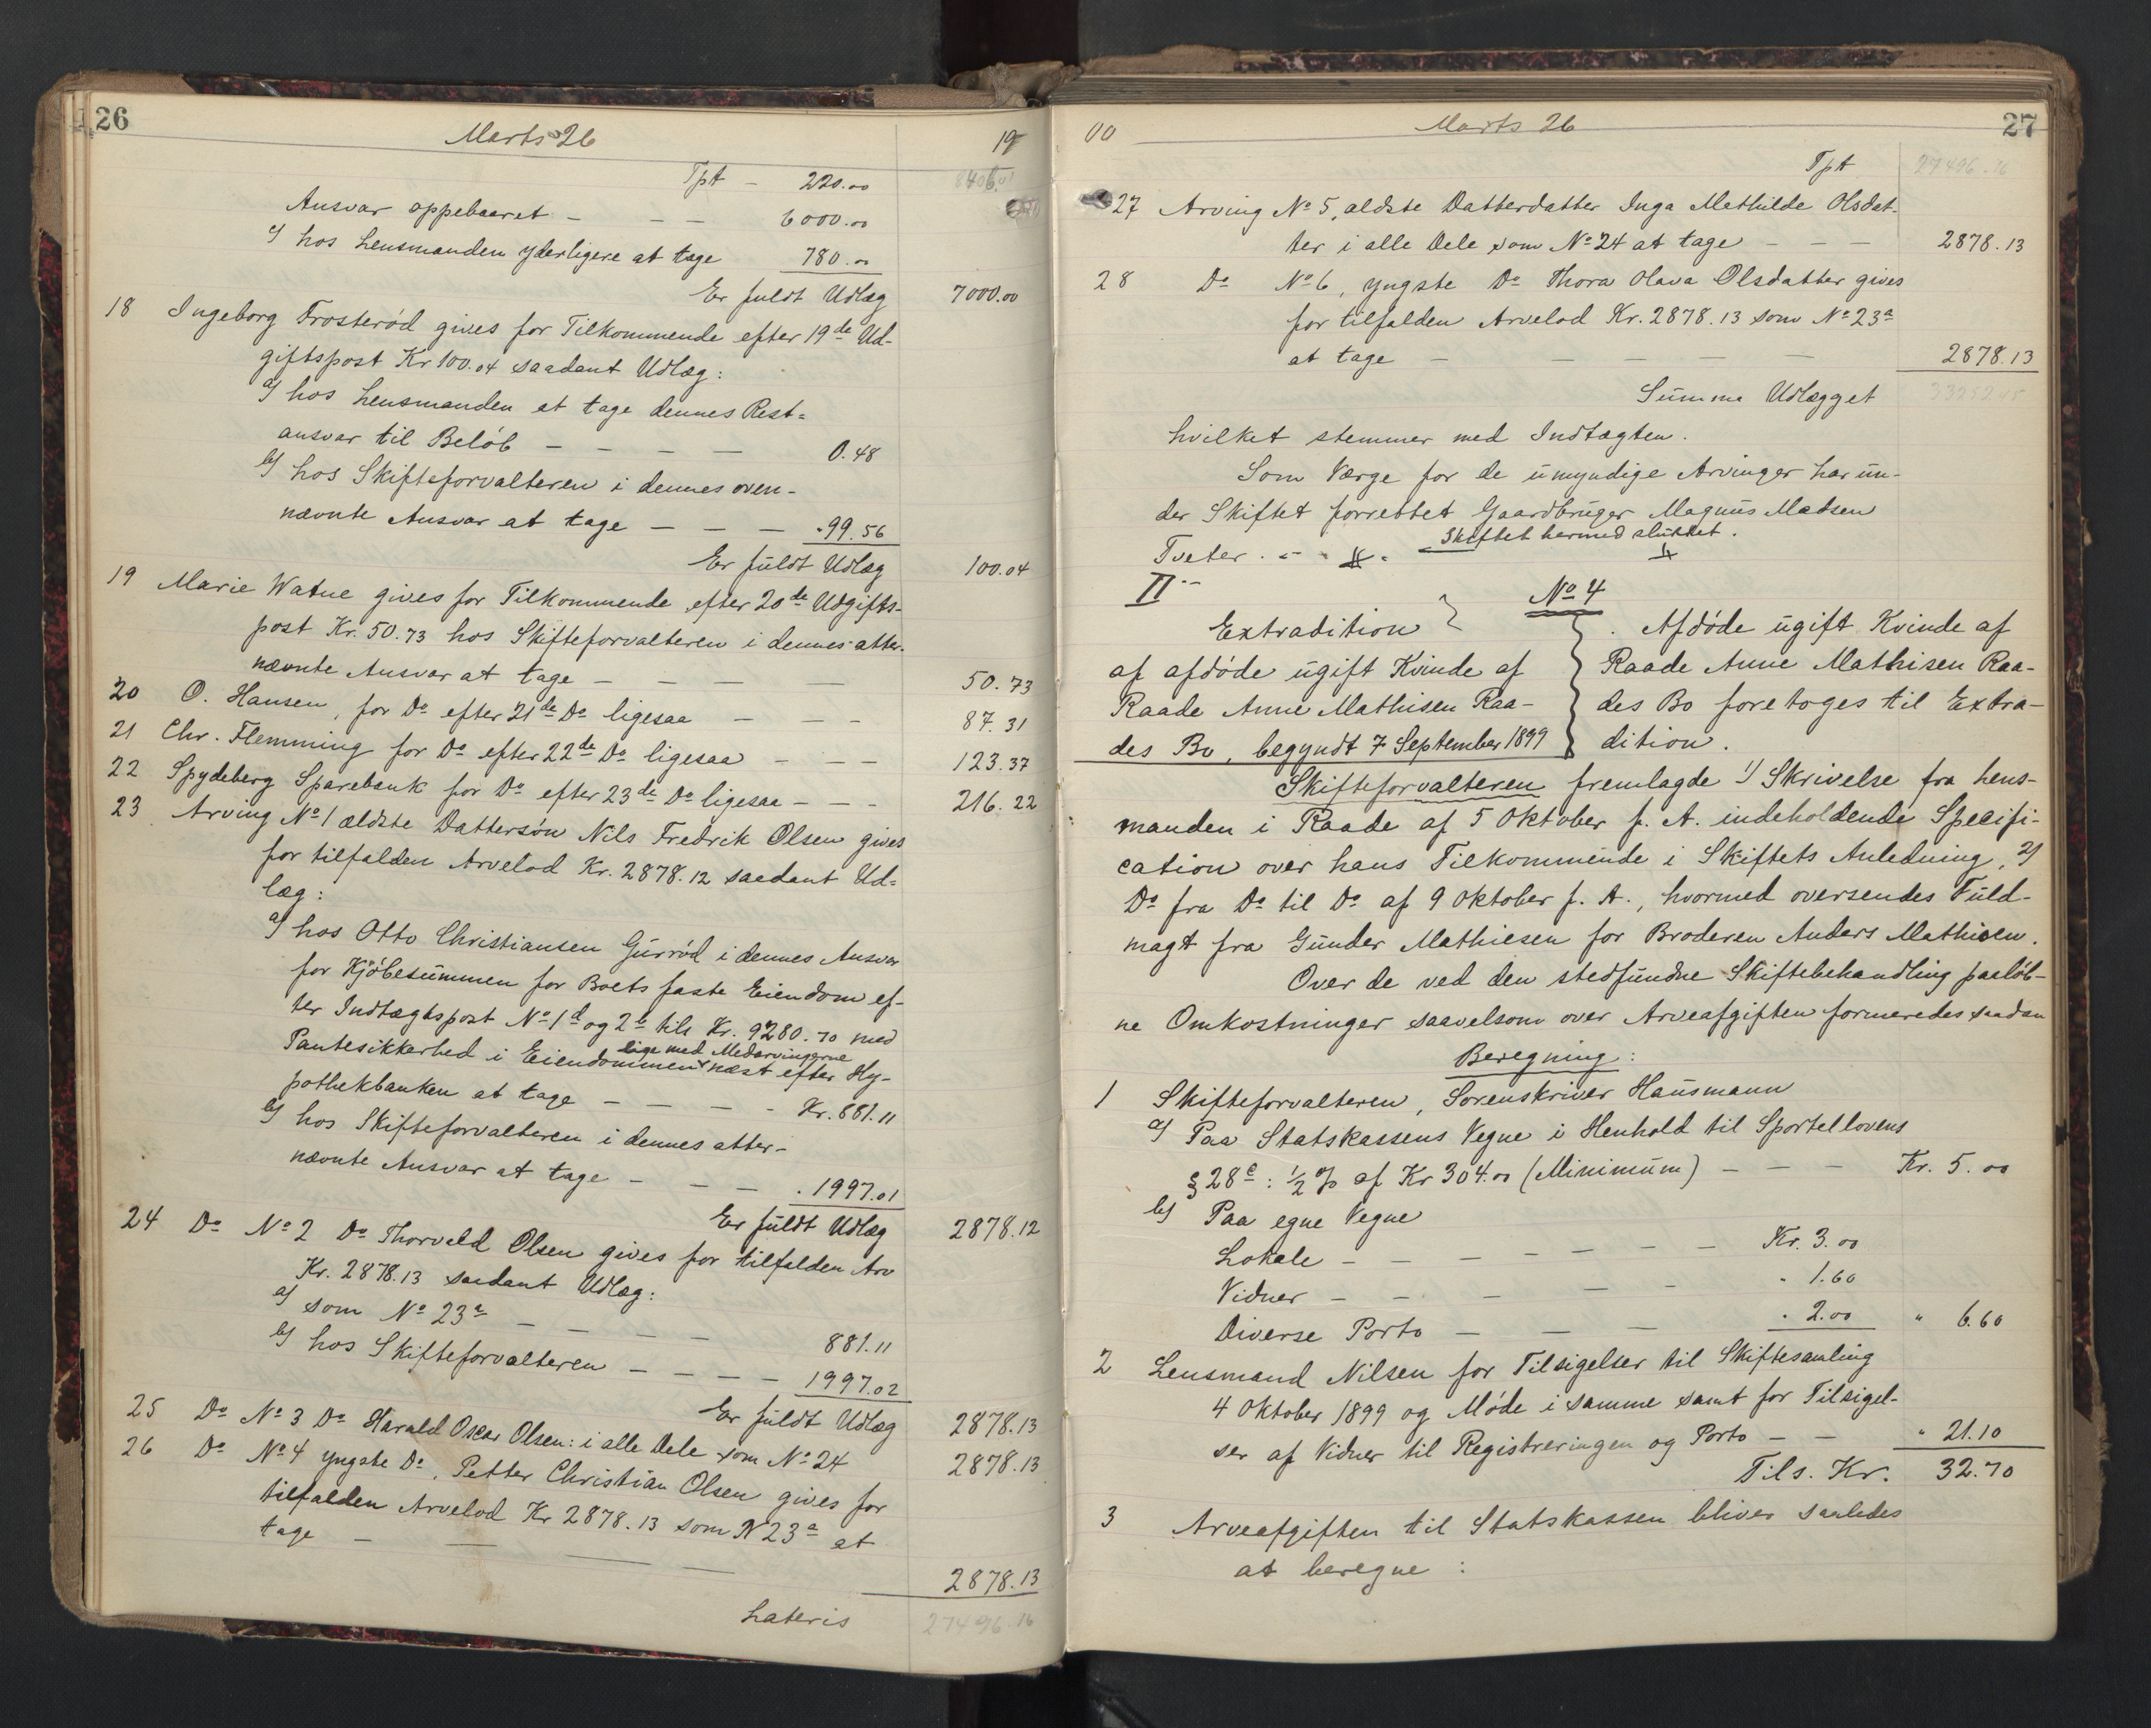 26
Marts 26
19
Tpt — 220.00
8406.01
Ansvar oppebaaret — — — 6000.00
c/ hos Lensmanden yderligere at tage 780.00
Er fuldt Udlæg 7000.00
18 Ingeborg Frosterød gives for Tilkommende efter 19de Ud-
giftspost Kr 100.04 saadant Udlæg:
a/ hos Lensmanden at tage dennes Rest=
ansvar til Beløb — — — — 0.48
b/ hos Skifteforvalteren i dennes oven-
nævnte Ansvar at tage — — — " 99.56
Er fuldt Udlæg 100.04
19 Marie Watne gives for Tilkommende efter 20de Udgifts-
post Kr. 50.73 hos Skifteforvalteren i dennes atter-
nævnte Ansvar at tage — — — — 50.73
20 O. Hansen, for Do efter 21de Do ligesaa — — — 87.31
21 Chr. Flemming for Do efter 22de Do ligesaa — — — 123.37
22 Spydeberg Sparebank for Do efter 23de Do ligesaa — — — 216.22
23 Arving No 1 ældste Dattersøn Nils Fredrik Olsen gives
for tilfalden Arvelod Kr. 2878.12 saadant Ud=
læg:
a/ hos Otto Christiansen Gurrød i dennes Ansvar
for Kjøbesummen for Boets faste Eiendom ef-
ter Indtægtspost No 1d og 2b tils Kr. 9280.70 med
lige med Medarvingerne
Pantesikkerhed i Eiendommen næst efter Hy-
pothekbanken at tage — — — — Kr. 881.11
b/ hos Skifteforvalteren i dennes atter-
nævnte Ansvar at tage — — — " 1997.01
Er fuldt Udlæg 2878.12
24 Do No 2 Do Thorvald Olsen gives for tilfalden Arv
Kr. 2878.13 saadant Udlæg:
a/ som No 23a — — — — 881.11
b/ hos Skifteforvalteren — — — — 1997.02
Er fuldt Udlæg 2878.13
25 Do No 3 Do Harald Oscar Olsen: i alle Dele som No 24 2878.13
26 Do No 4 yngste Do, Petter Christian Olsen gives for
tilfalden Arvelod Kr 2878.13 som N 23a at
tage — — — — 2878.13
Lateris 27496.16
00
Marts 26
27
Tpt 27496.16
27 Arving No 5, ældste Datterdatter Inga Mathilde Olsdat-
ter i alle Dele som No 24 at tage — — — 2878.13
28 Do No 6, yngste Do Thora Olava Olsdatter gives
for tilfalden Arvelod Kr. 2878.13 som No 23a
at tage — — — — — 2878.13
Summa Udlægget 33252
hvilket stemmer med Indtægten.
Som Værge for de umyndige Arvinger har un-
der Skiftet forrettet Gaardbruger Magnus Madsen
Tveter. — Skiftet hermed sluttet.
II
No 4
Extradition
af afdøde ugift Kvinde af
Raade Anne Mathisen Raa-
des Bo, begyndt 7 September 1899
Afdøde ugift Kvinde af
Raade Anne Mathisen Raa-
des Bo foretoges til Extra-
dition.
Skifteforvalteren fremlagde 1/ Skrivelse fra Lens-
manden i Raade af 5 Oktober f. A. indeholdende Specifi-
cation over hans Tilkommende i Skiftets Anledning, 2/
Do fra Do til Do af 9 Oktober f. A., hvormed oversendes Fuld-
magt fra Gunder Mathiesen for Broderen Anders Mathisen.
Over de ved den stedfundne Skiftebehandling paaløb-
ne Omkostninger saavelsom over Arveafgiften formeredes saadan
Beregning:
1 Skifteforvalteren, Sorenskriver Hausmann
a/ Paa Statskassens Vegne i Henhold til Sportellovens
§ 28c: ½ % af Kr 304.00 (Minimum) — — — Kr. 5.00
b/ Paa egne Vegne
Lokale — — — — — — Kr. 3.00
Vidner — — — — — " 1.60
Diverse Porto — — — " 2.00 " 6.60
2 Lensmand Nilsen for Tilsigelser til Skiftesamling
4 Oktober 1899 og Møde i samme samt for Tilsigel-
ser af Vidner til Registreringen og Porto — — " 21.10
Tils. Kr. 32.70
3 Arveafgiften til Statskassen bliver saaledes
at beregne: